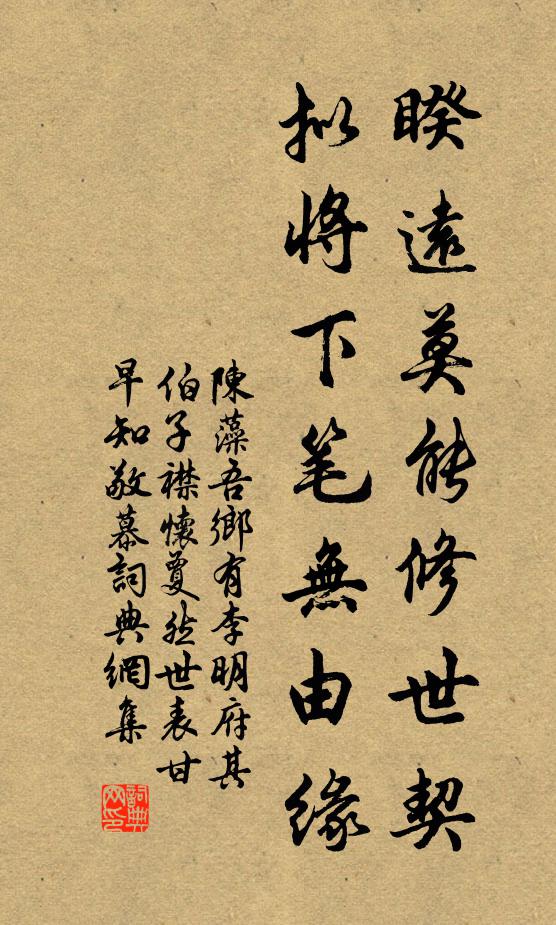 睽遠莫能修世契
拟將下笔無由緣
陳藻吾鄉有李明府其
伯子襟懷夐然世表甘
早知敬慕詞典網集
詞典
网印